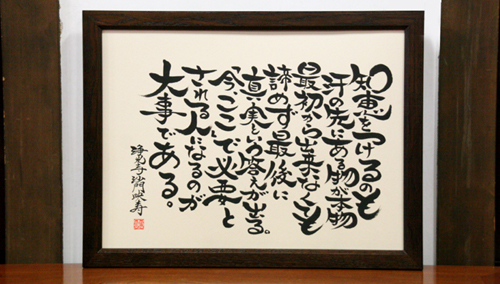 知恵をつけるのも
汗の先にある物が本物
最初から出来なくも
諦めず最後に
真実という答えが出る。
「今、ここ」で必要と
される人になるのが
大事である。